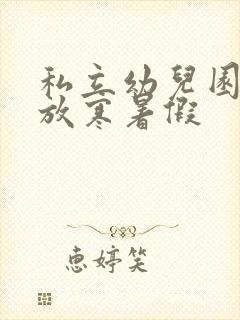 私立幼兒園
放寒暑假
惠婷笑